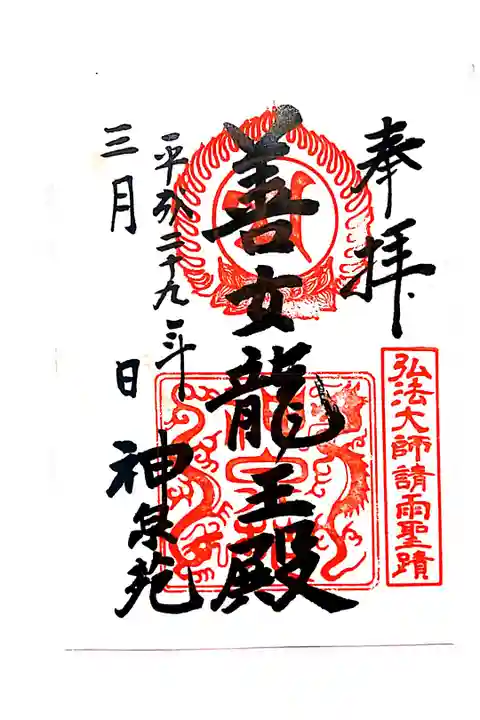 奉拝
弘法大師請雨聖蹟
善女龍王殿
平成二十九年
三月 日
神泉苑